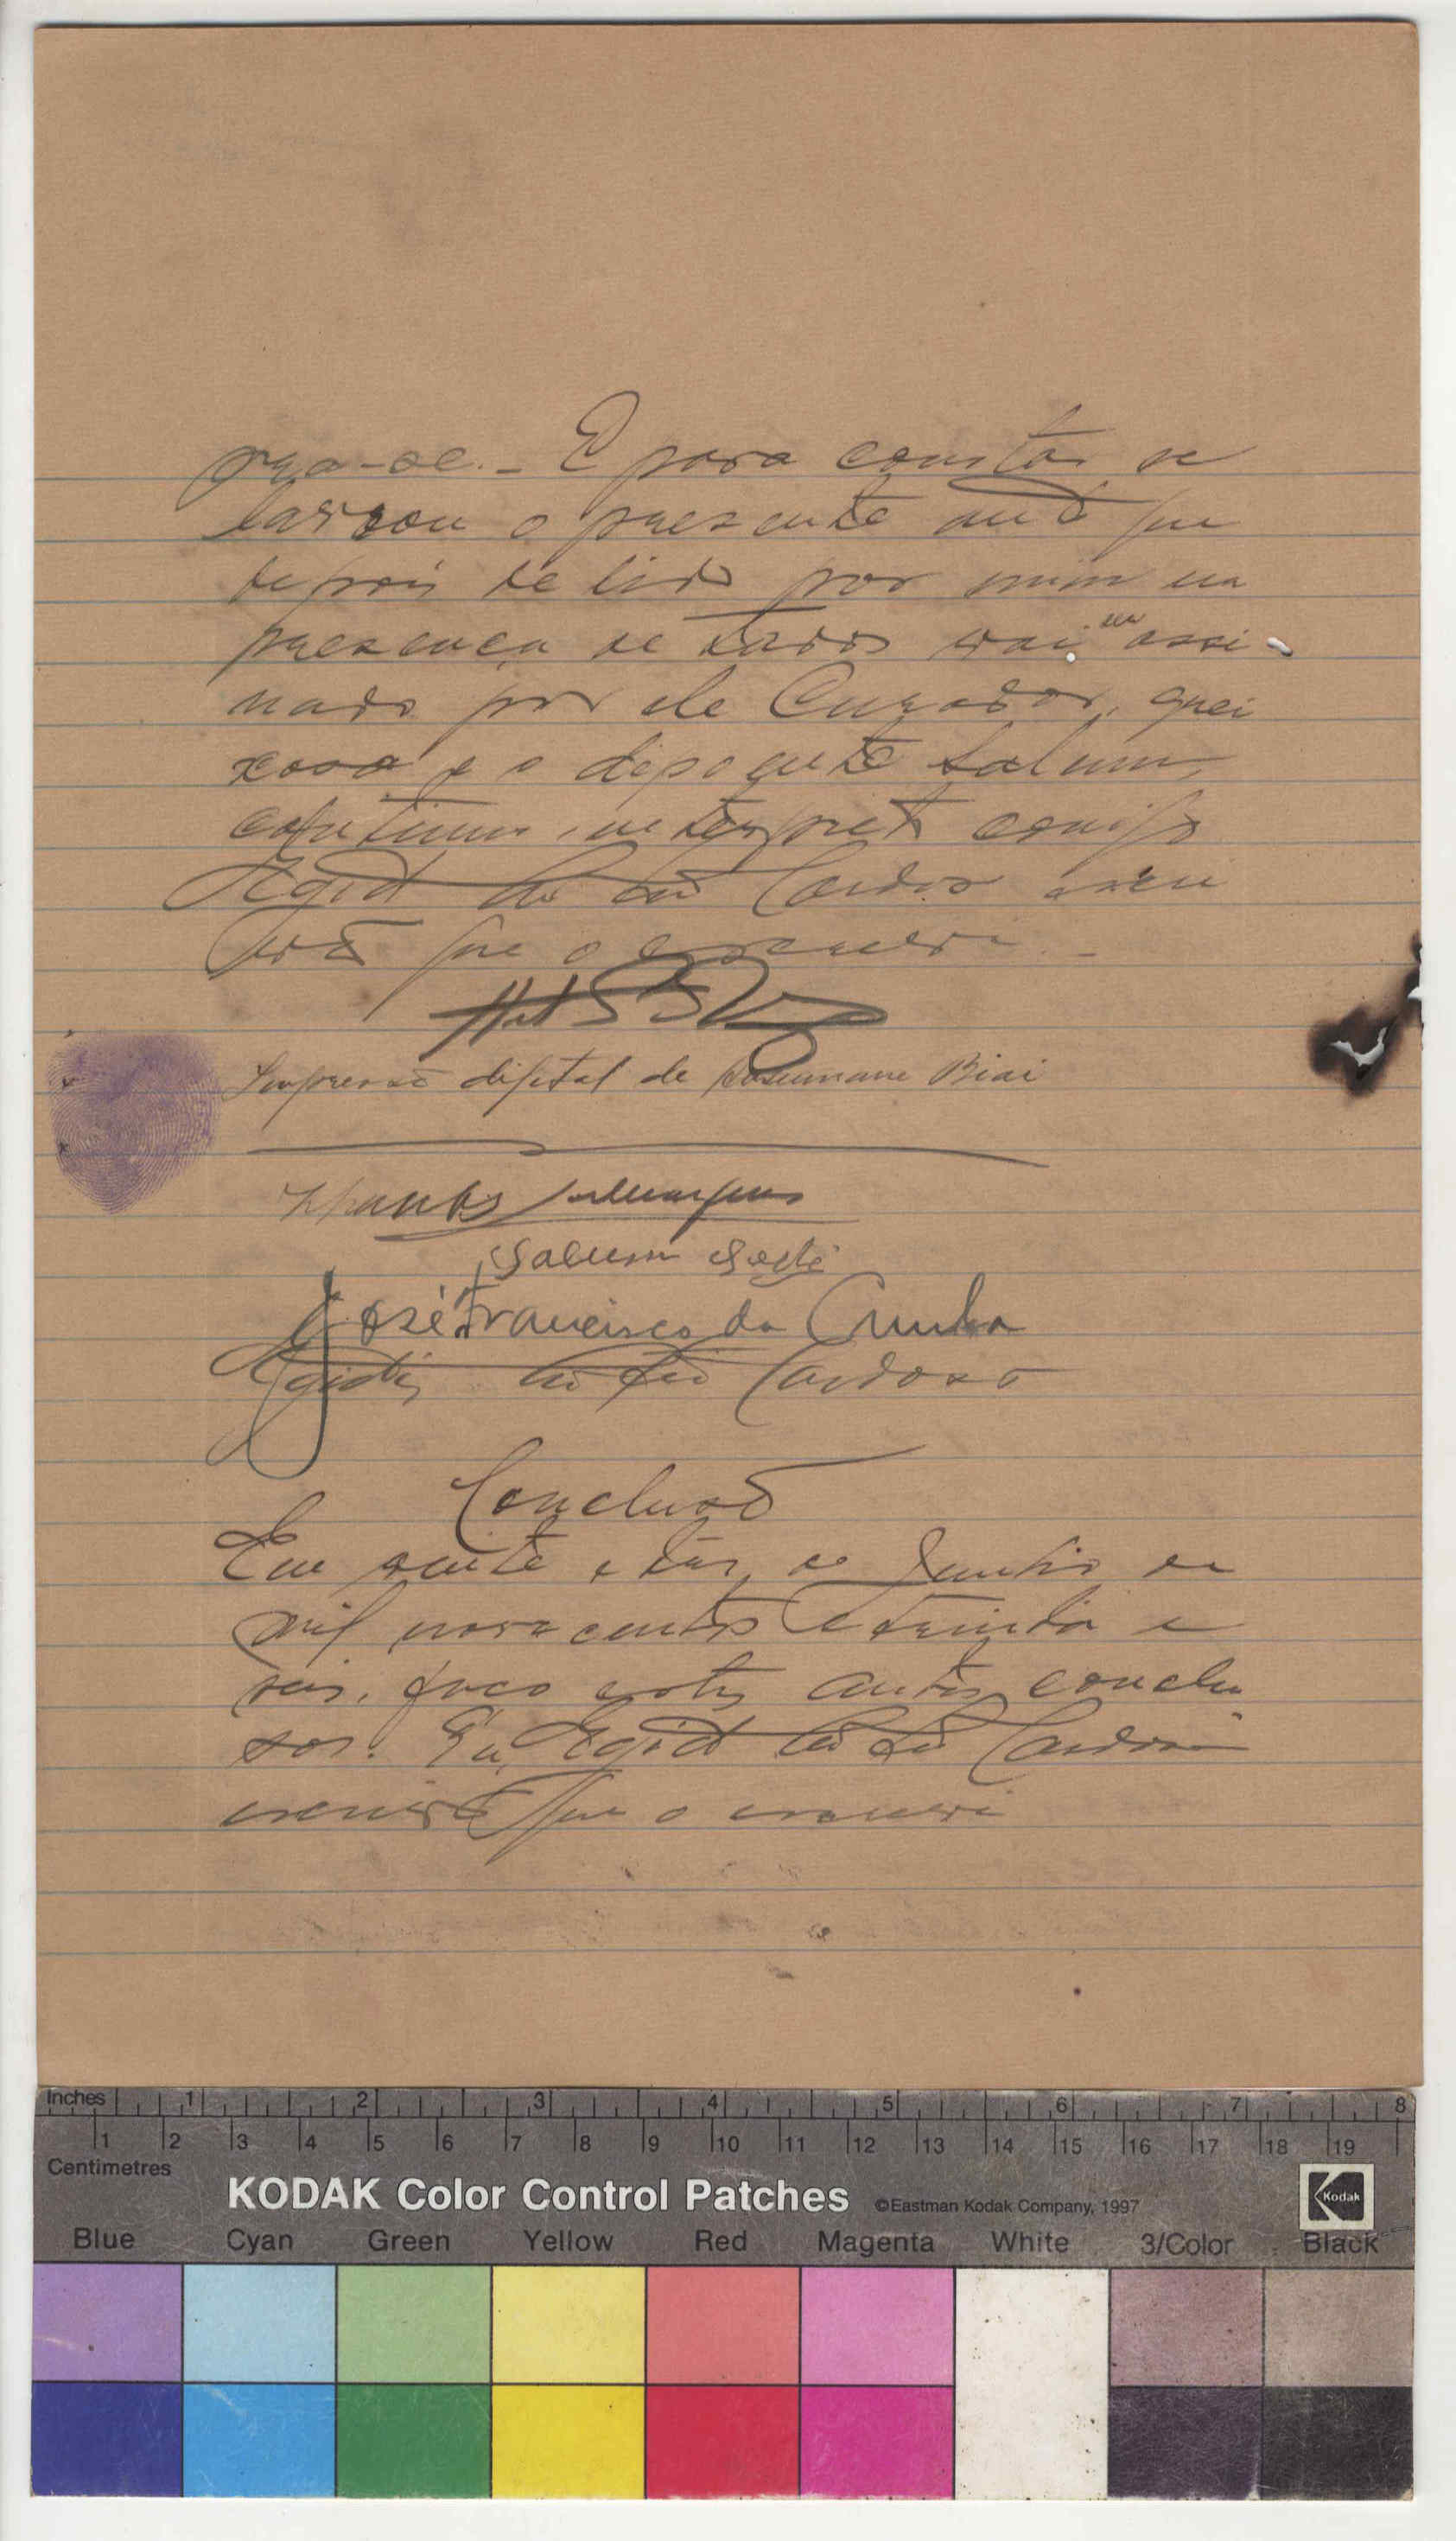 -se. - E para constar se
lavrou o presente auto que
depois de lido por mim na
presença de todos vai em assi-
nado por ele Curador, quei
xosa e o depoente Salum,
interprete comigo
Egidio Cardoso escri
vão que o escrevi -
Impressão digital de Biai
Salum
José Francisco da Cunha
Egidio Cardoso
Conclusão
Em vinte e tres de Junho de
mil novecentos e trinta e
seis, faço estes autos conclu
sos. Eu, Egidio Cardoso
escrivão que o escrevi
Inches 1 2 3 4 5 6 7 8
1 2 3 4 5 6 7 8 9 10 11 12 13 14 15 16 17 18 19
Centimetres
KODAK Color Control Patches ©Eastman Kodak Company, 1997 Kodak
Blue Cyan Green Yellow Red Magenta White 3/Color Black